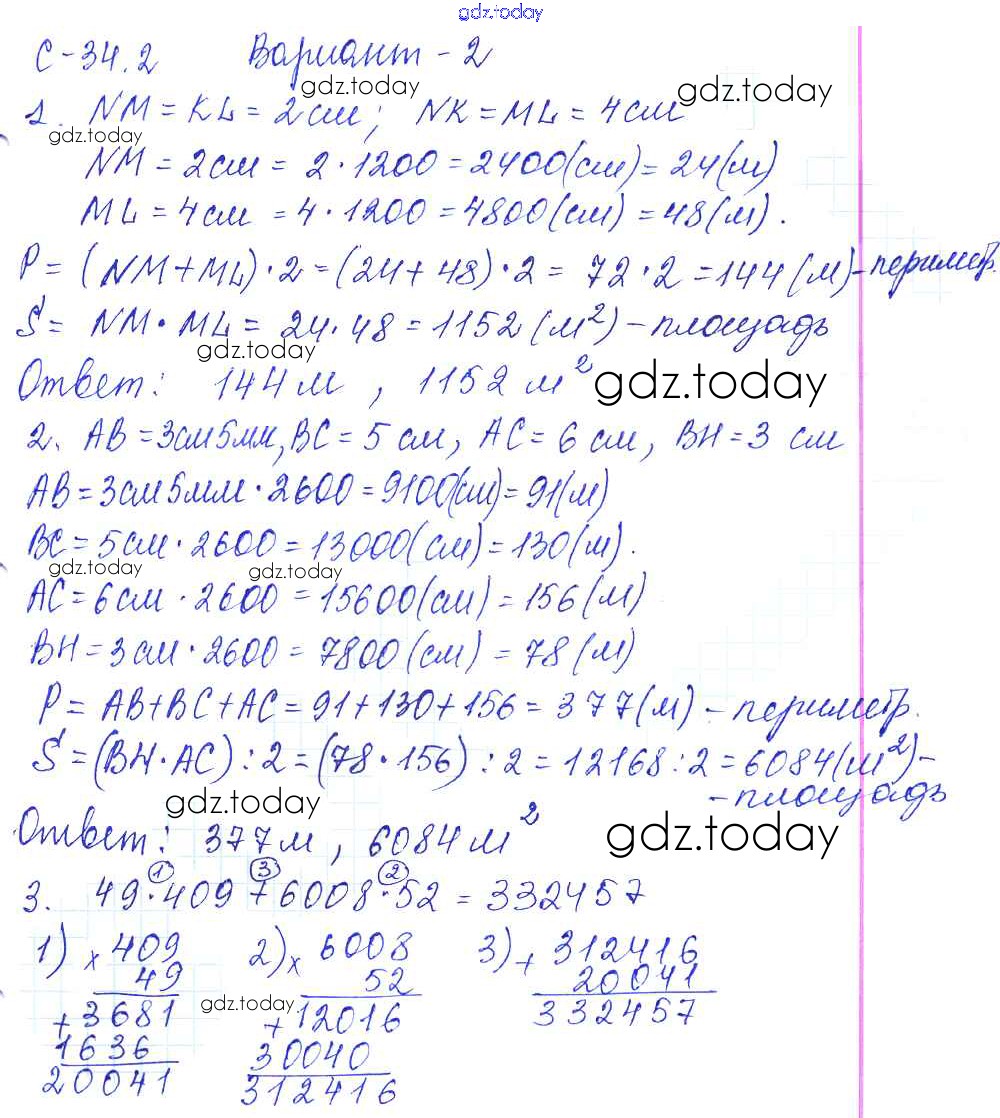 gdz.today
С-34.2 Вариант-2
gdz.today gdz.today
1. NM = KL = 2см; NK = ML = 4см
gdz.today
NM = 2см = 2·1200 = 2400(см) = 24(м)
ML = 4см = 4·1200 = 4800(см) = 48(м).
P = (NM+ML)·2 = (24+48)·2 = 72·2 = 144(м) - периметр.
S = NM·ML = 24·48 = 1152(м²) - площадь
gdz.today
Ответ: 144м, 1152 м²
gdz.today
2. AB = 3см5мм, BC = 5 см, AC = 6 см, BH = 3 см
AB = 3см5мм·2600 = 9100(см) = 91(м)
BC = 5см·2600 = 13000(см) = 130(м).
gdz.today gdz.today
AC = 6см·2600 = 15600(см) = 156(м)
BH = 3см·2600 = 7800(см) = 78(м)
P = AB+BC+AC = 91+130+156 = 377(м) - периметр.
S = (BH·AC):2 = (78·156):2 = 12168:2 = 6084(м²) -
- площадь
gdz.today
Ответ: 377м, 6084м²
gdz.today
1 3 2
3. 49·409+6008·52 = 332457
1) × 409 2) × 6008 3) + 312416
49 52 20041
+ 3681 gdz.today + 12016 332457
1636 30040
20041 312416